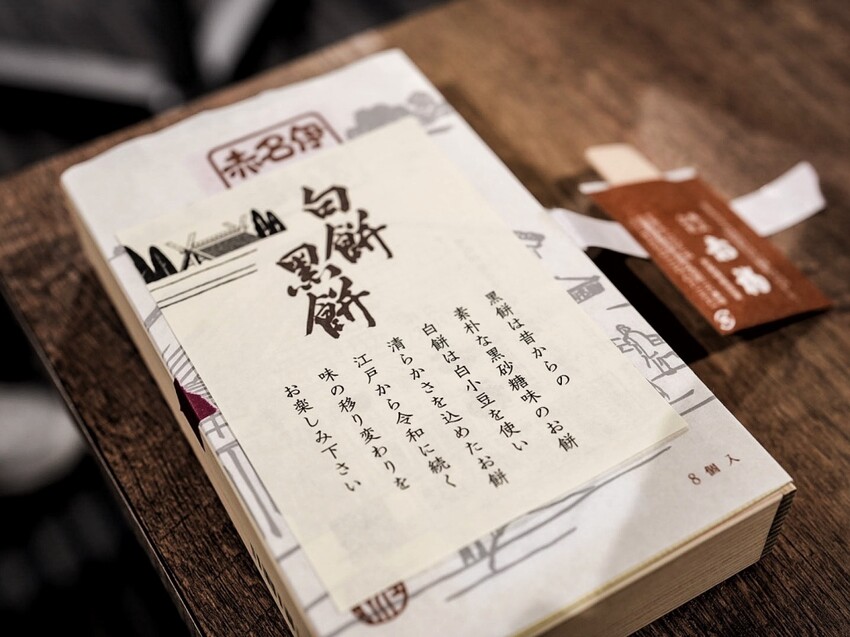 伊名赤
白餅
黒餅
黒餅は昔からの
素朴な黒砂糖味のお餅
白餅は白小豆を使い
清らかさを込めたお餅
江戸から令和に続く
味の移り変わりを
お楽しみ下さい
8個入